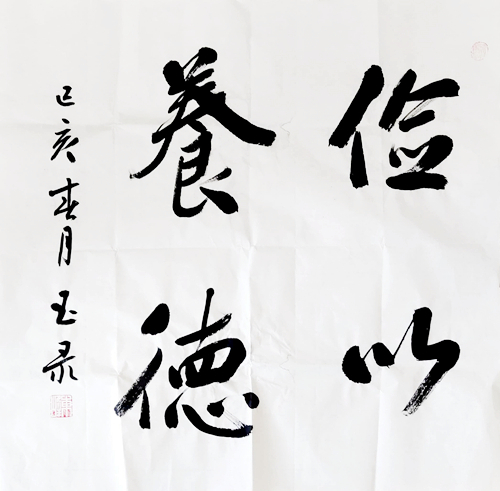 俭以
養德
己亥春月玉录